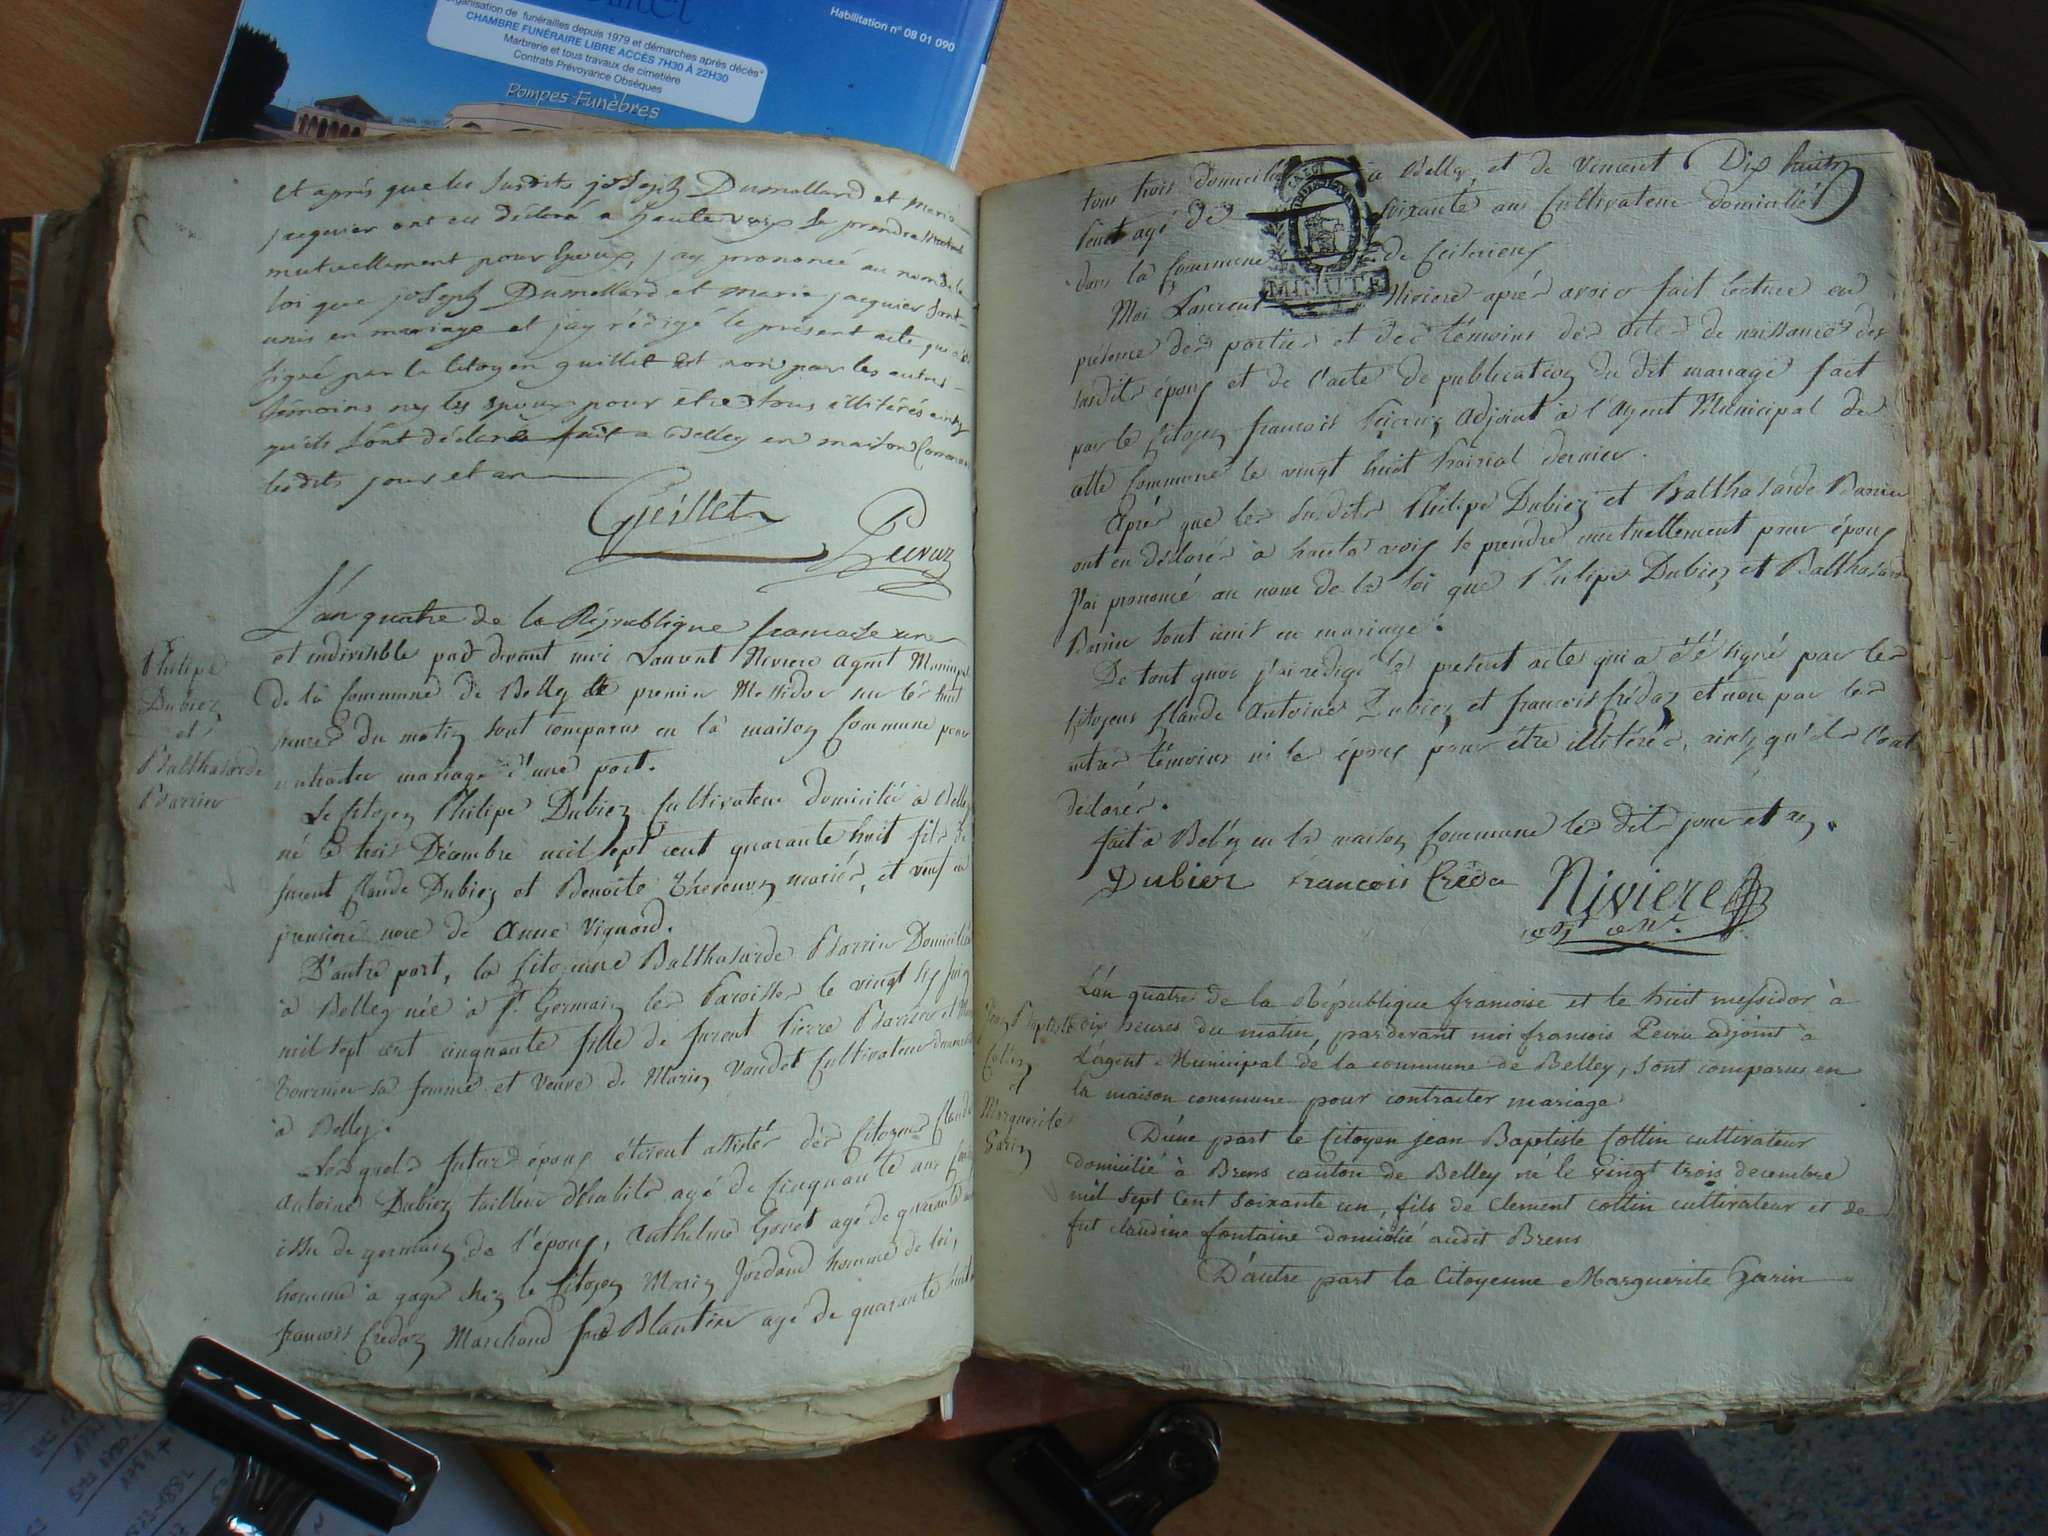 Habilitation n° 08 01 090
organisation de funérailles depuis 1979 et démarches après décès*
CHAMBRE FUNÉRAIRE LIBRE ACCÈS 7H30 À 22H30
Marbrerie et tous travaux de cimetière
Contrats Prévoyance Obsèques
Pompes Funèbres
et après que les susdits joseph Dumollard et marie
jacquier ont eu déclaré a haute voix se prendre
mutuellement pour Epoux, j'ay prononcé au nom de la
loi que joseph Dumollard et marie jacquier sont
unis en mariage et j'ay rédigé le présent acte qui a été
signé par le citoyen guillet et non par les autres
témoins ny les époux pour être tous illitérés ainsy
qu'ils l'ont déclaré fait a Belley en maison Commune
lesdits jour et an
Guillet
Peuruz
L'an quatre de la République francaise une
et indivisible par devant moi Laurent Niviere Agent Municipal
de la Commune de Belley le premier Messidor sur les huit
heures du matin sont comparus en la maison Commune pour
contracter mariage d'une part.
Le Citoyen Philipe Dubiez Cultivateur domicilié à Belley
né le trois Décembre mil sept cent quarante huit fils de
furent Claude Dubiez et Benoite mariés, et veuf en
premiere noce de Anne Vignard.
D'autre part, la Citoyenne Balthasarde Barrin Domiciliée
à Belley née à St. Germain les Paroisses le vingt six juin
mil sept cent cinquante fille de furent Pierre Barrin et
Tournier sa femme et veuve de Marin Vaudet Cultivateur
à Belley.
Les quels futurs époux étoient assistés des Citoyens Claude
Antoine Dubiez tailleur d'habits agé de Cinquante ans
issu de germain de l'époux, Anthelme Goriet agé de quarante
homme à gage chez le Citoyen Marin Jordand homme de loi,
francois Crédoz Marchand Blantier agé de quarante huit
Philipe
Dubiez
et
Balthasarde
Barrin
tous trois domiciliés à Belley, et de Vincent Dix huit
Peuet agé de soixante ans Cultivateur domicilié
dans la Commune de
MINUTE
Moi Laurent Niviere après avoir fait lecture en
présence des parties et des témoins des actes de naissance des
susdits époux et de l'acte de publication du dit mariage fait
par le Citoyen francois Adjoint à l'Agent Municipal de
cette Commune le vingt huit Prairial dernier.
Après que les susdits Philipe Dubiez et Balthasarde Barrin
ont eu déclarés à haute voix se prendre mutuellement pour époux
J'ai prononcé au nom de la loi que Philipe Dubiez et Balthasarde
Barrin sont unis en mariage.
De tout quoi j'ai redigé le présent acte qui a été signé par les
Citoyens Claude Antoine Dubiez et francois Crédoz et non par les
autres témoins ni les époux pour être illitérés, ainsy qu'ils l'ont
déclarés.
fait à Belley en la maison Commune les dits jour et an.
Dubiez francois Crédoz Niviere
L'an quatre de la République francoise et le huit messidor à
dix heures du matin, pardevant moi francois Peiru adjoint à
l'agent Municipal de la commune de Belley, sont comparus en
la maison commune pour contracter mariage
D'une part le Citoyen jean Baptiste Cottin cultivateur
domicilié à Brens canton de Belley né le vingt trois decembre
mil sept cent soixante un, fils de clement cottin cultivateur et de
fut claudine fontaine domicilié audit Brens
D'autre part la Citoyenne Marguerite Garin
Jean Baptiste
Cottin
et
Marguerite
Garin